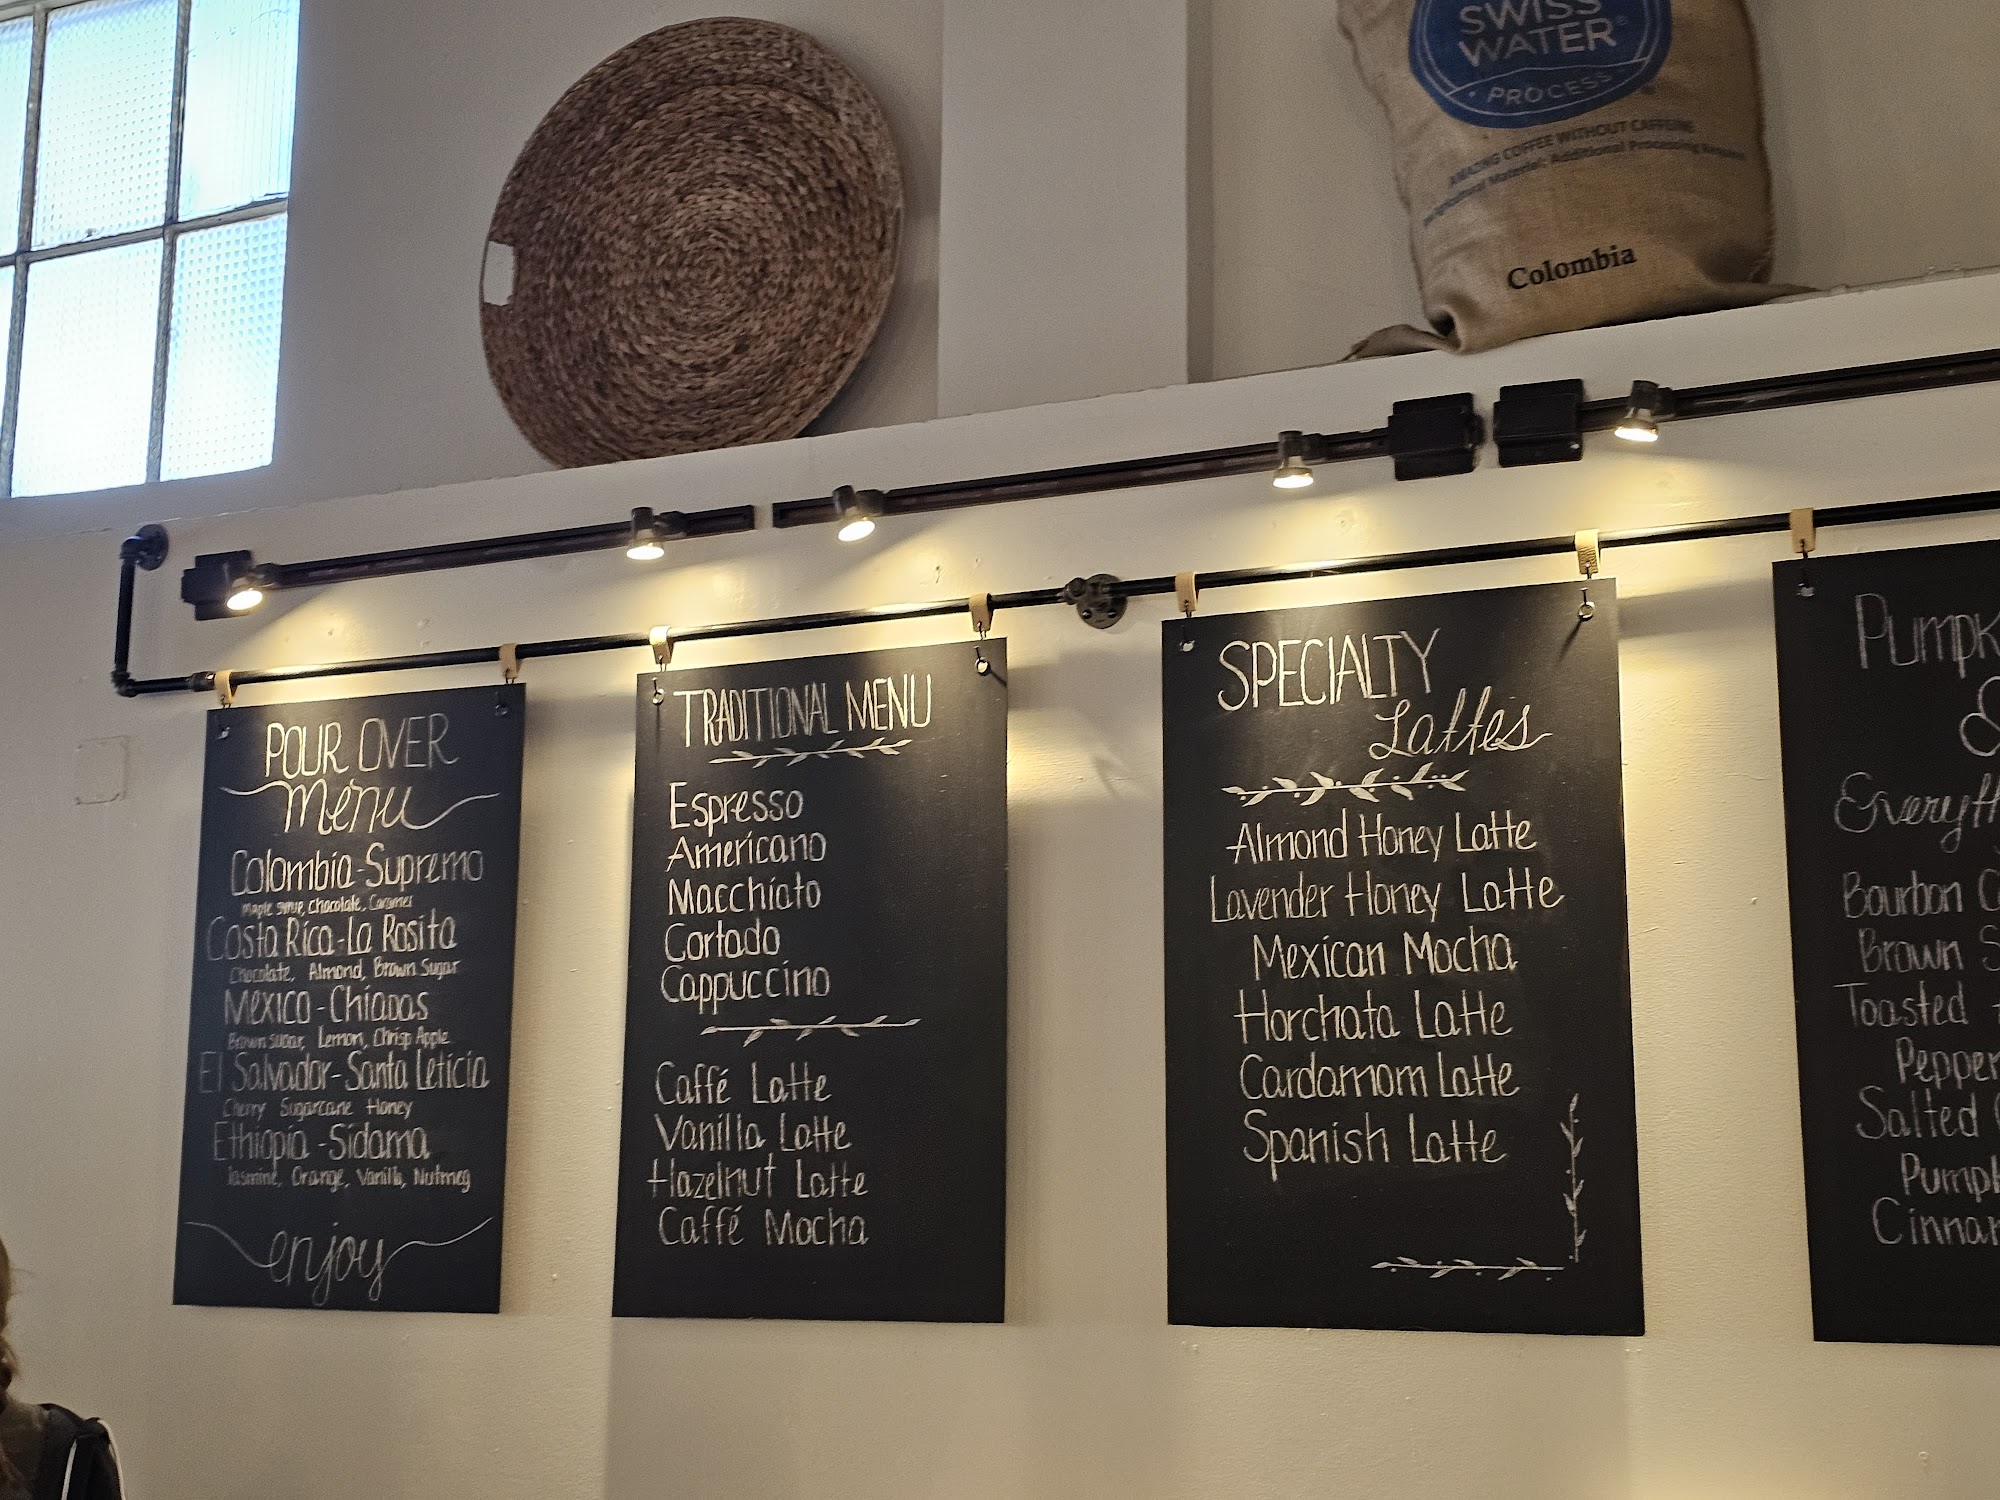 SWISS
WATER®
PROCESS
AMAZING COFFEE WITHOUT CAFFEINE
Agricultural Material: Additional Processing
Colombia
POUR OVER
menu
Colombia-Supremo
Maple syrup, Chocolate, Caramel
Costa Rica-La Rosita
Chocolate, Almond, Brown Sugar
Mexico-Chiapas
Brown sugar, Lemon, Chrisp Apple
El Salvador-Santa Leticia
Cherry Sugarcane Honey
Ethiopia-Sidama
Jasmine, Orange, Vanilla, Nutmeg
enjoy
TRADITIONAL MENU
Espresso
Americano
Macchiato
Cortado
Cappuccino
Caffé Latte
Vanilla Latte
Hazelnut Latte
Caffé Mocha
SPECIALTY
Lattes
Almond Honey Latte
Lavender Honey Latte
Mexican Mocha
Horchata Latte
Cardamom Latte
Spanish Latte
Pumpk
&
Everyth
Bourbon C
Brown S
Toasted
Pepper
Salted
Pumpk
Cinnam